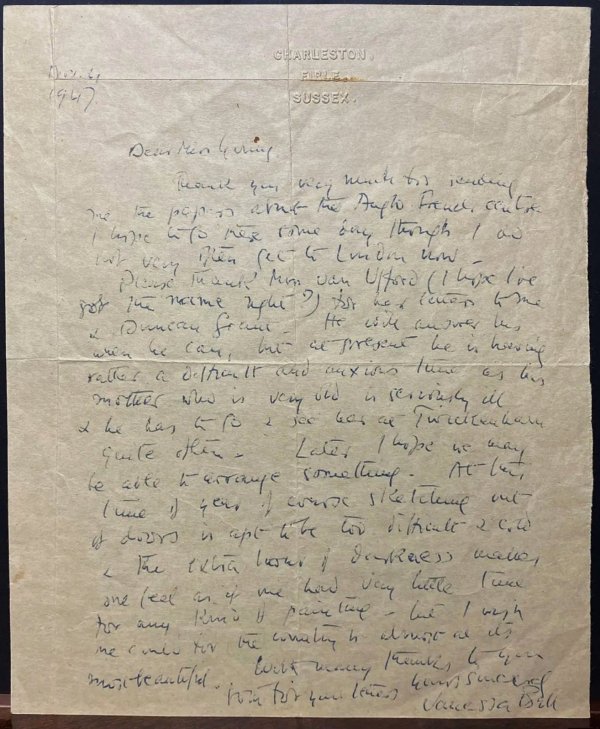 CHARLESTON.
FIRLE.
SUSSEX.
1947.
Dear Miss
Thank you very much for sending
me the papers about the Anglo French centre
I hope to go there some day though I do
not very often get to London now -
Please thank Miss van Ufford (I hope I've
got the name right?) for her letters to me
& Duncan Grant. He will answer his
when he can, but at present he is having
rather a difficult and anxious time as his
mother who is very old is seriously ill
& he has to go & see her at Twickenham
quite often - Later I hope we may
be able to arrange something. At this
time of year of course sketching out
of doors is apt to be too difficult & cold
& the extra hours of darkness makes
one feel as if one had very little time
for any kind of painting - but I wish
we could for the country is almost at its
most beautiful. With many thanks to you
both for your letters yours sincerely
Vanessa Bell